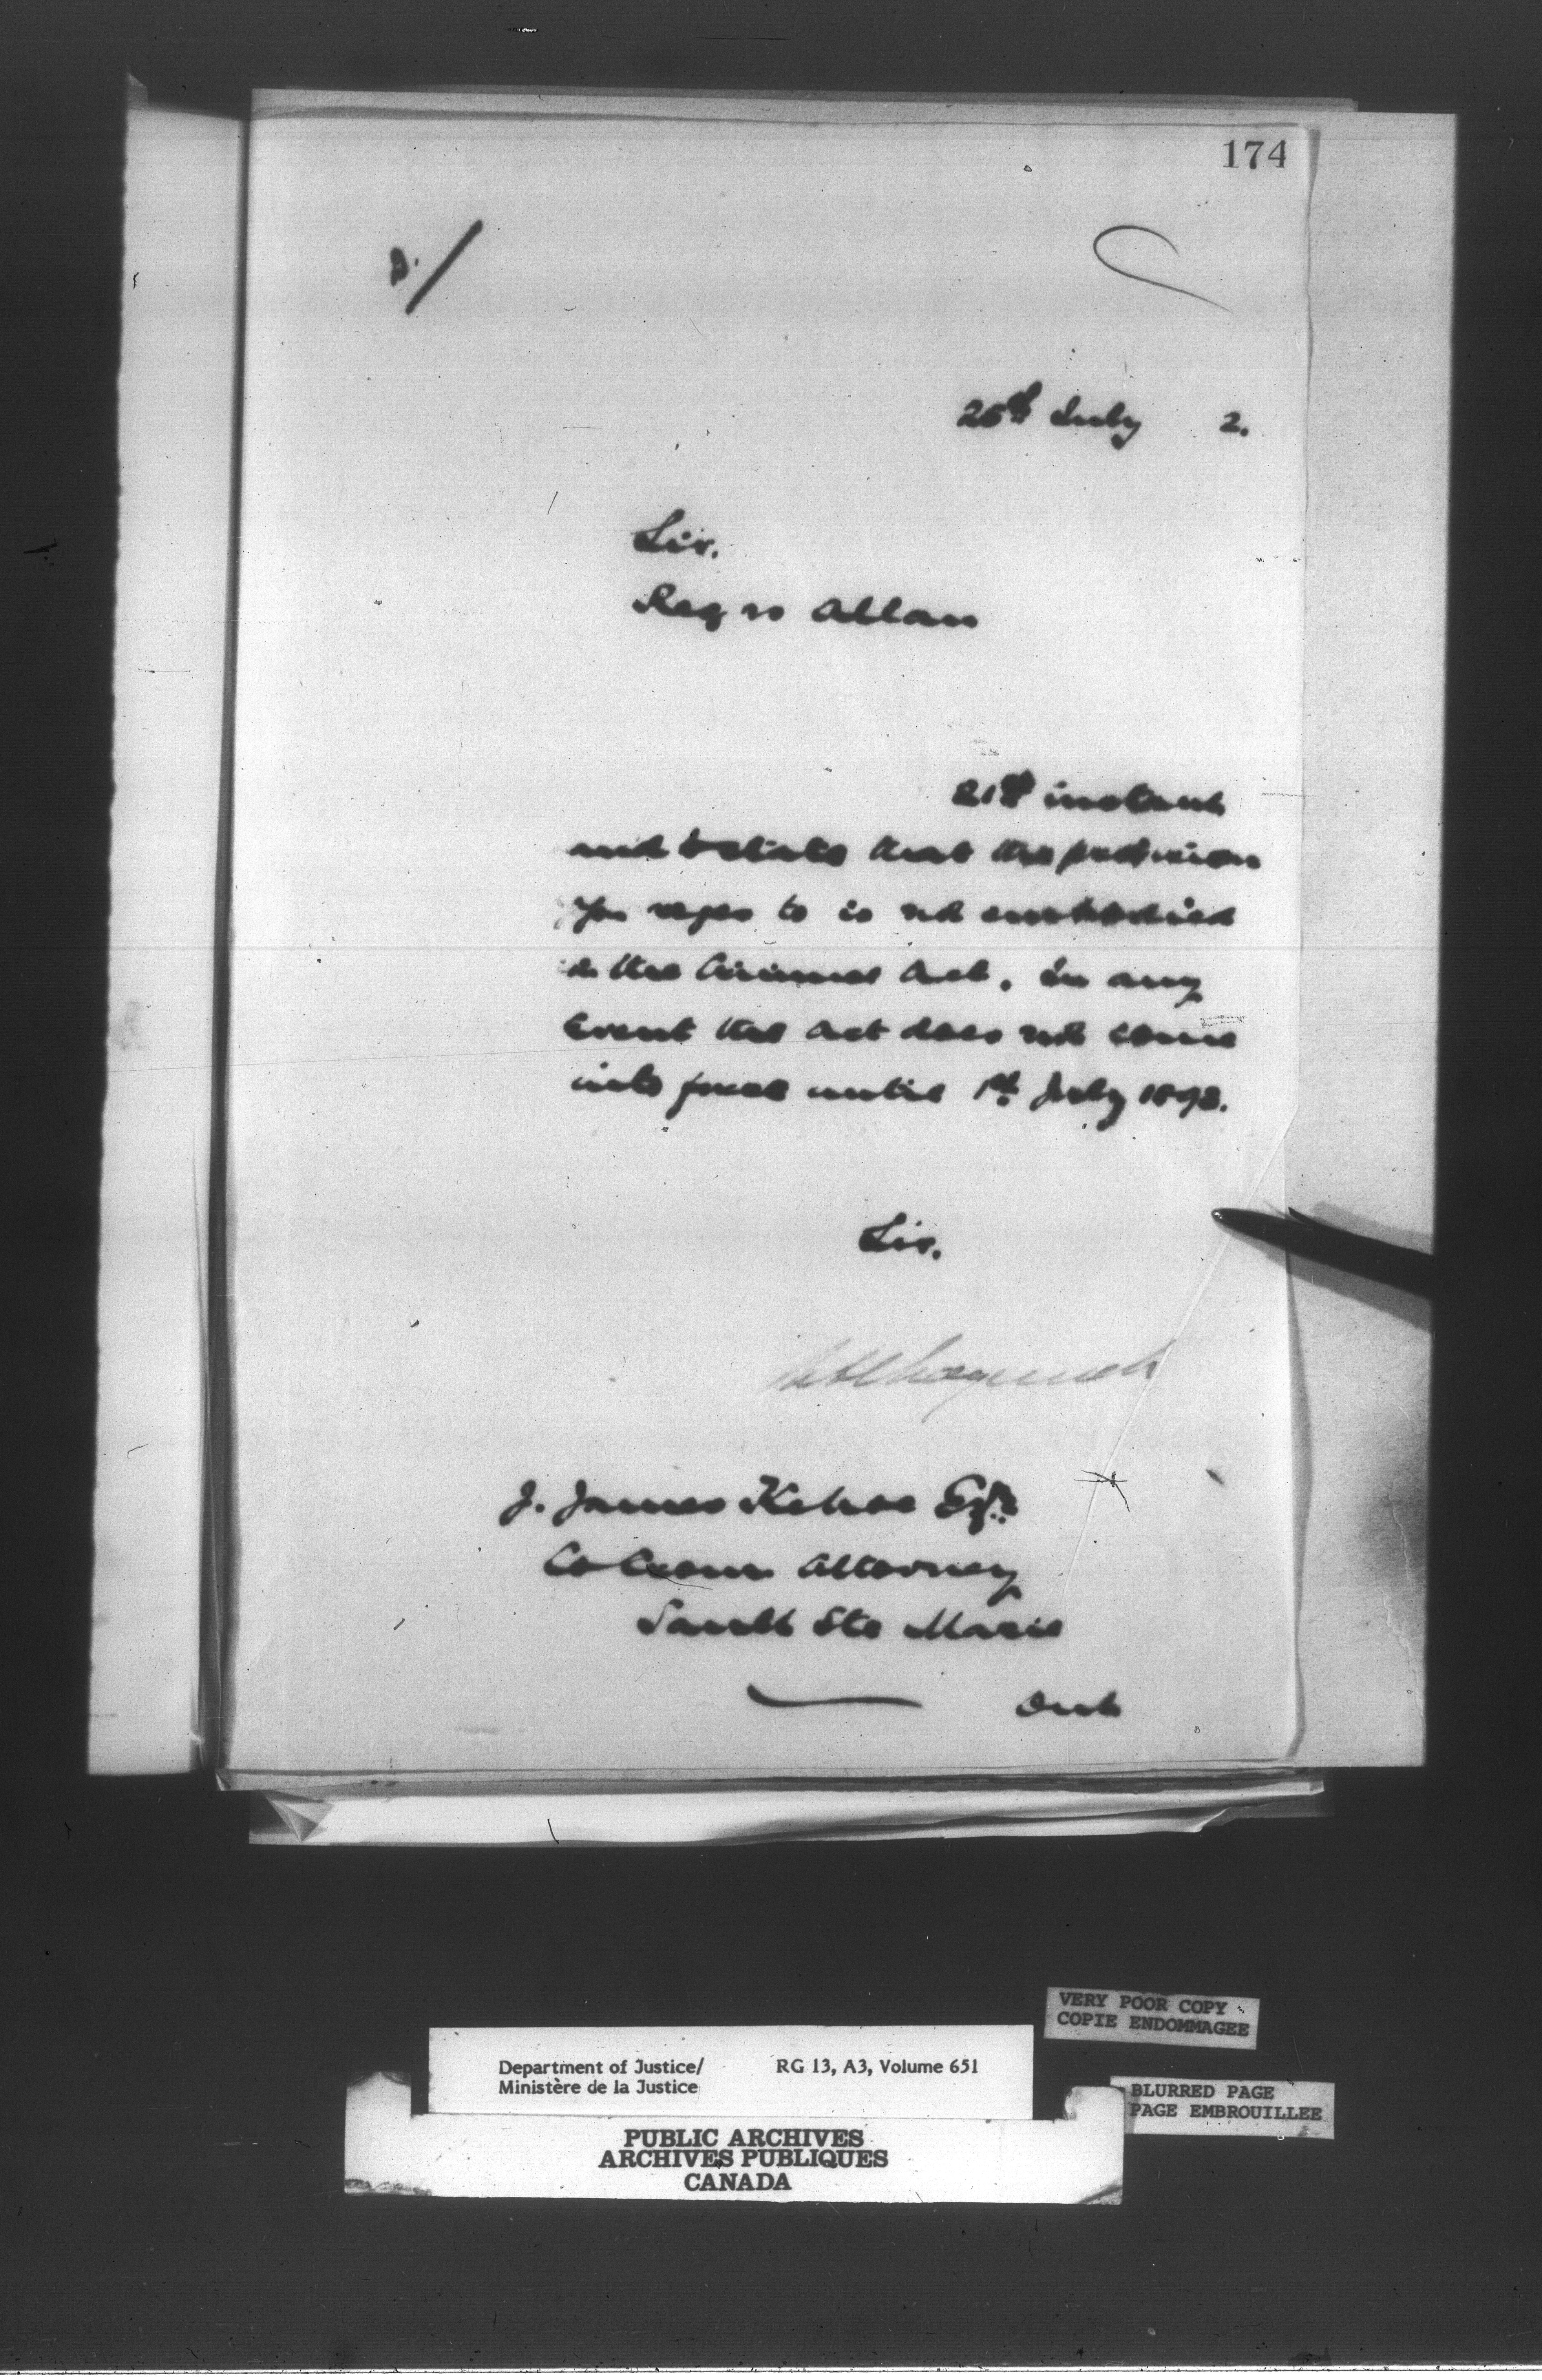 174
25th July 2.
Sir.
Reg vs Allan
21st instant
and to state that the provision
you refer to is not embodied
in the Criminal Act. In any
event the Act does not come
into force until 1st July 1893.
Sir.
J. James Kehoe Esqr.
Co Crown Attorney
Sault Ste Marie
Ont
VERY POOR COPY
COPIE ENDOMMAGEE
Department of Justice/ RG 13, A3, Volume 651
Ministère de la Justice
BLURRED PAGE
PAGE EMBROUILLEE
PUBLIC ARCHIVES
ARCHIVES PUBLIQUES
CANADA